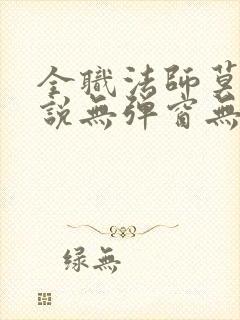 全職法師莫
說無彈窗無
綠無